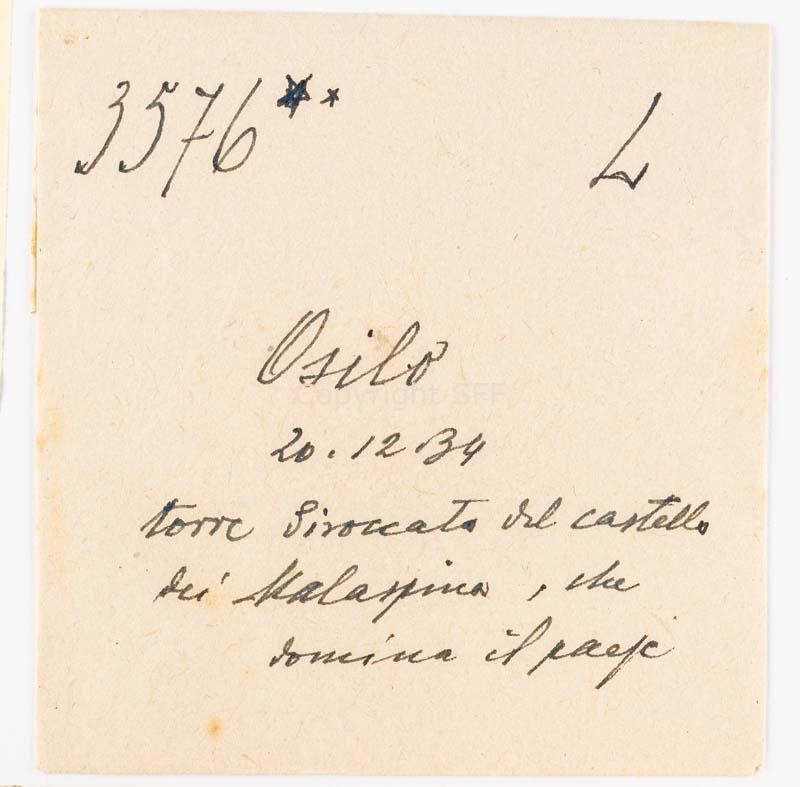 3576** L
Osilo
Copyright SFF
20.12.34
torre diroccata del castello
dei Malaspina, che
domina il paese